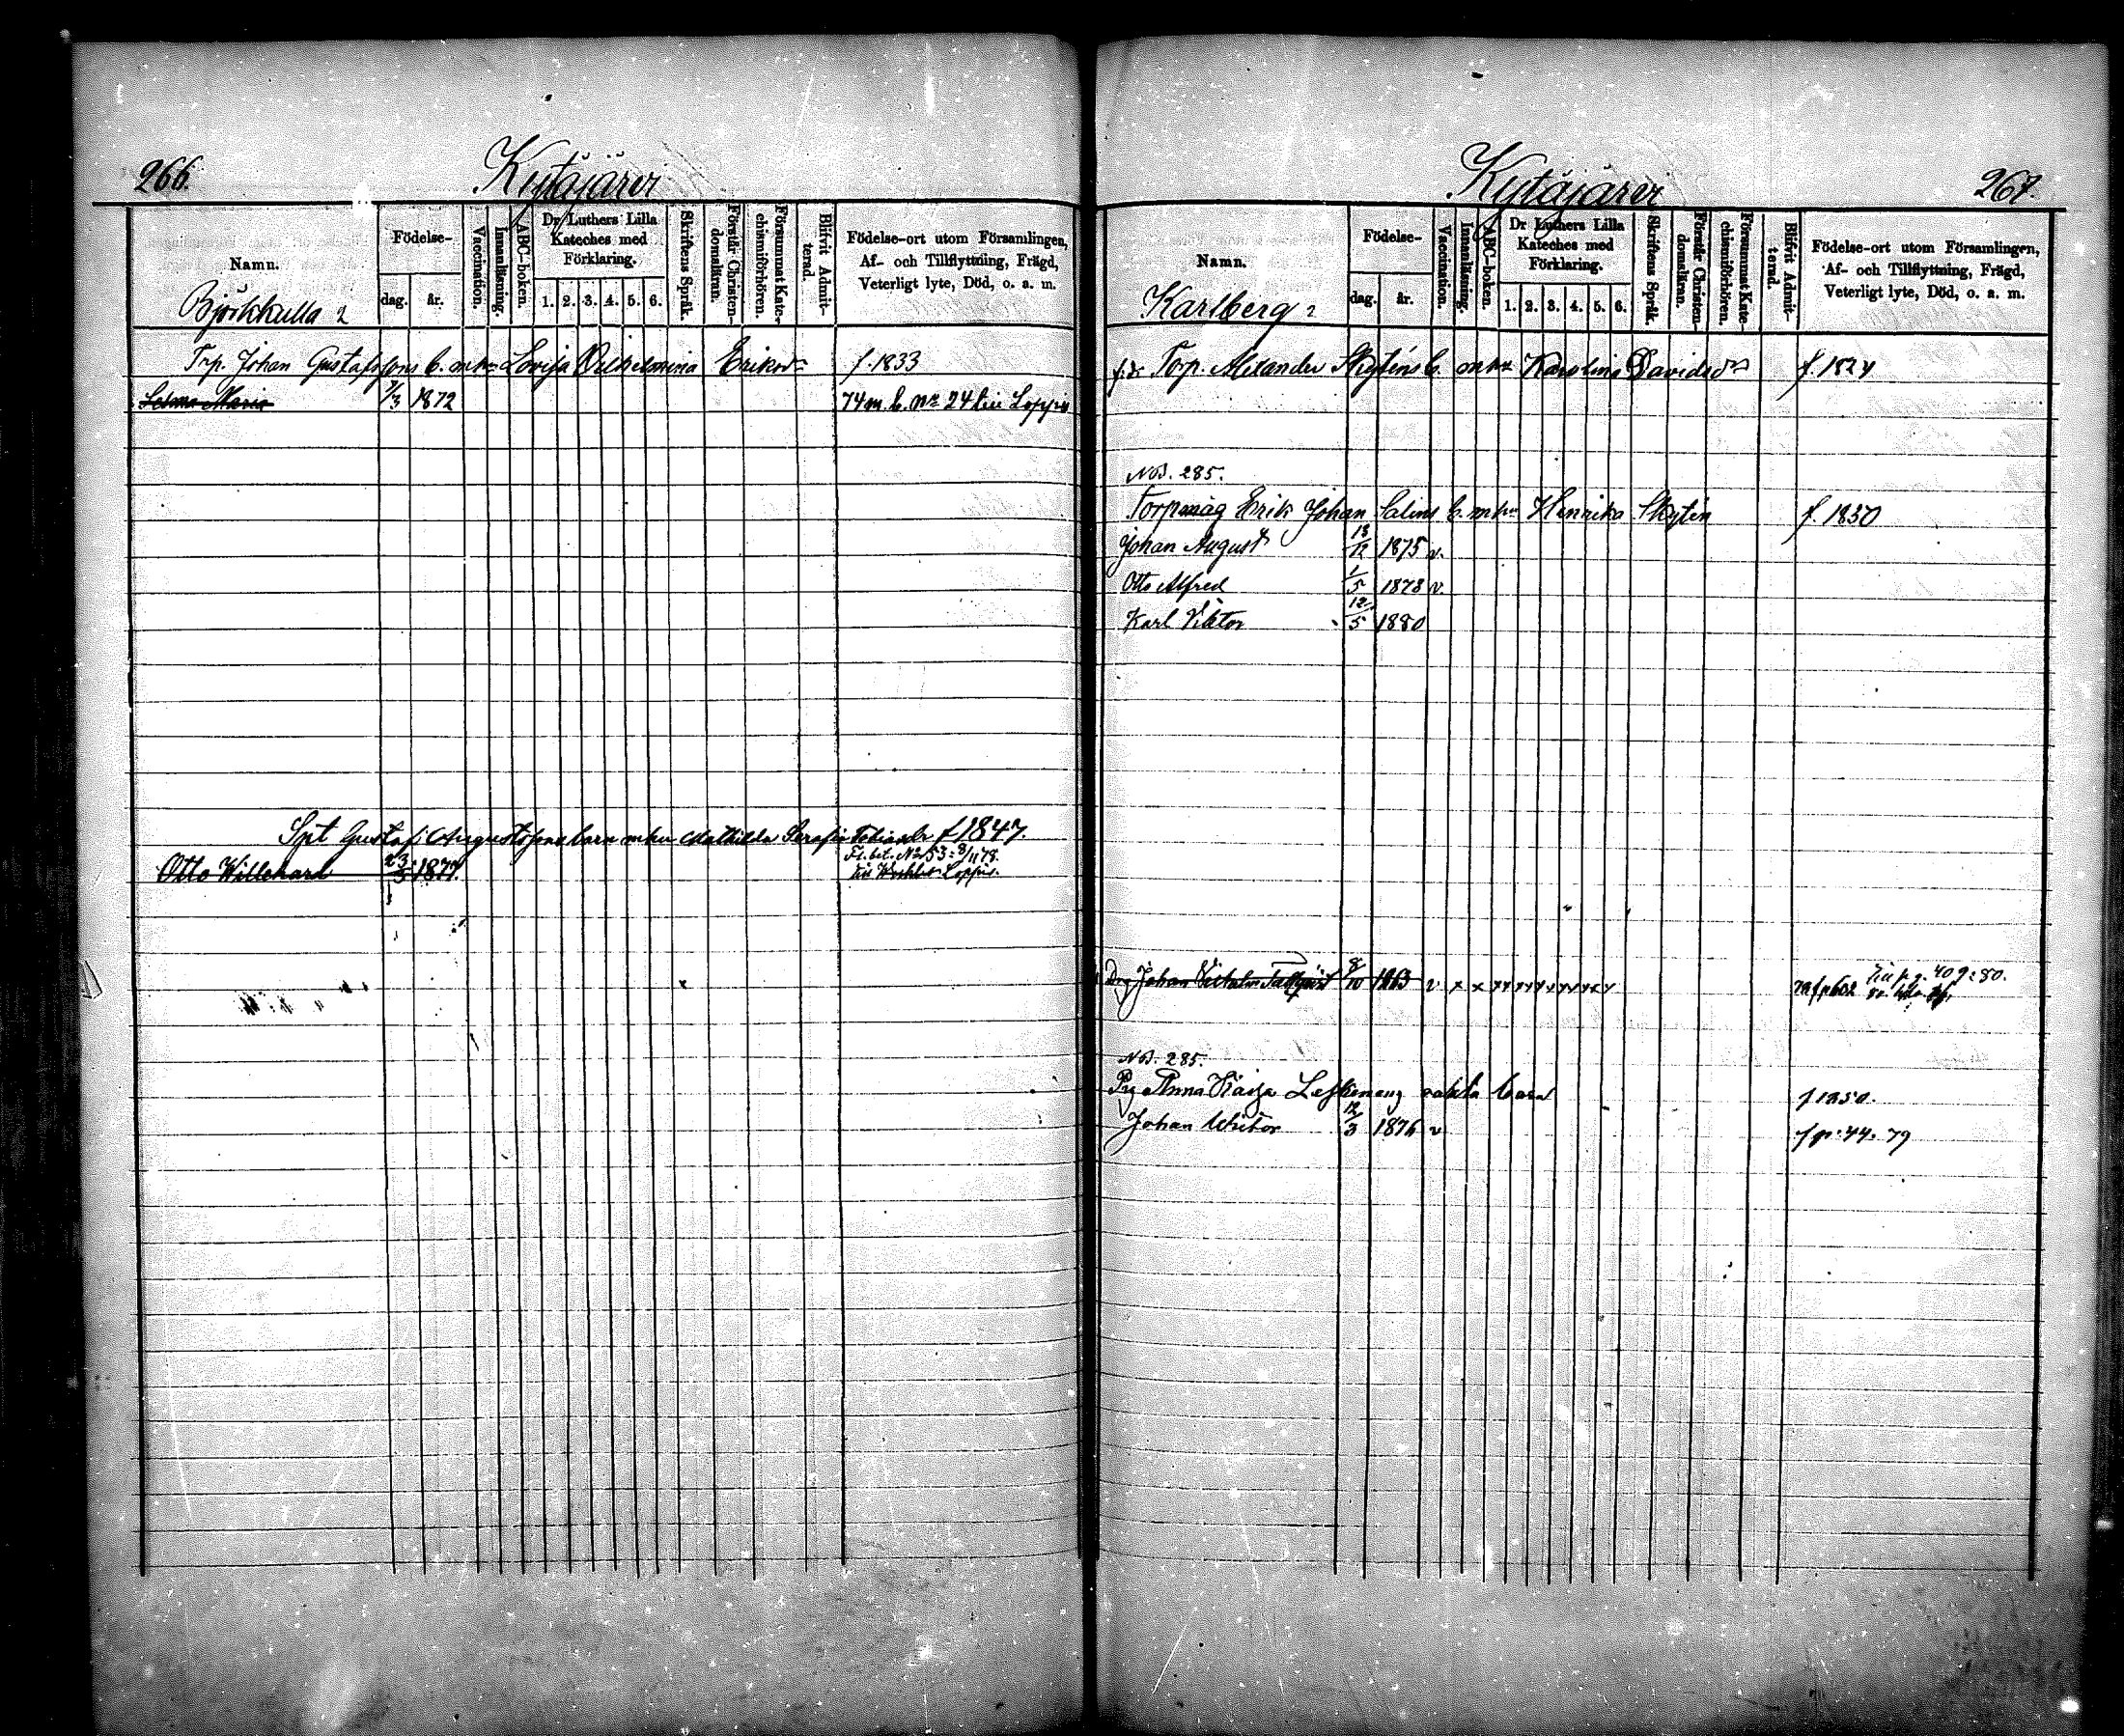 266.
Kytäjärvi
Namn.
Björkkulla 2
Födelse-
dag. år.
Vaccination.
Innanläsning.
ABC-boken.
Dr Luthers Lilla
Kateches med
Förklaring.
1. 2. 3. 4. 5. 6.
Skriftens Språk.
Förstår Christen-
domsläran.
Försummat Kate-
chismiförhören.
Blifvit Admit-
terad.
Födelse-ort utom Församlingen,
Af- och Tillflyttning, Frägd,
Veterligt lyte, Död, o. a. m.
Trp. Johan Gustafssons b. m hu Lovisa Vilhelmina Eriksdr f. 1833
Selma Maria 7/3 1872 74 m. b. No 24 till Loppis
Spt Gustaf Augustssons barn m hu Mathilda Serafia Tobiasdr f 1847.
Otto Willehard 23/3 1877. Fl. bet. No 53: 8/11 78.
till Loppis.
267.
Kytäjärvi
Namn.
Karlberg 2
Födelse-
dag. år.
Vaccination.
Innanläsning.
ABC-boken.
Dr Luthers Lilla
Kateches med
Förklaring.
1. 2. 3. 4. 5. 6.
Skriftens Språk.
Förstår Christen-
domsläran.
Försummat Kate-
chismiförhören.
Blifvit Admit-
terad.
Födelse-ort utom Församlingen,
Af- och Tillflyttning, Frägd,
Veterligt lyte, Död, o. a. m.
f. d. Torp. Alexander Skyténs b. m hu Karolina Davidsdr f. 1824
No. 285.
Torpmåg Erik Johan Salins b. m hu Henrika Skytén f. 1850
Johan August 13/12 1875 v.
Otto Alfred 1/5 1878 v.
Karl Viktor 12/5 1880
Drg Johan Vilhelm 8/10 1863 v x x x x x x x x x till pg. 409: 80.
No. 285.
Pig Anna Kaisa oäkta barn f 1850.
Johan Viktor 12/3 1876 v f p: 44. 79